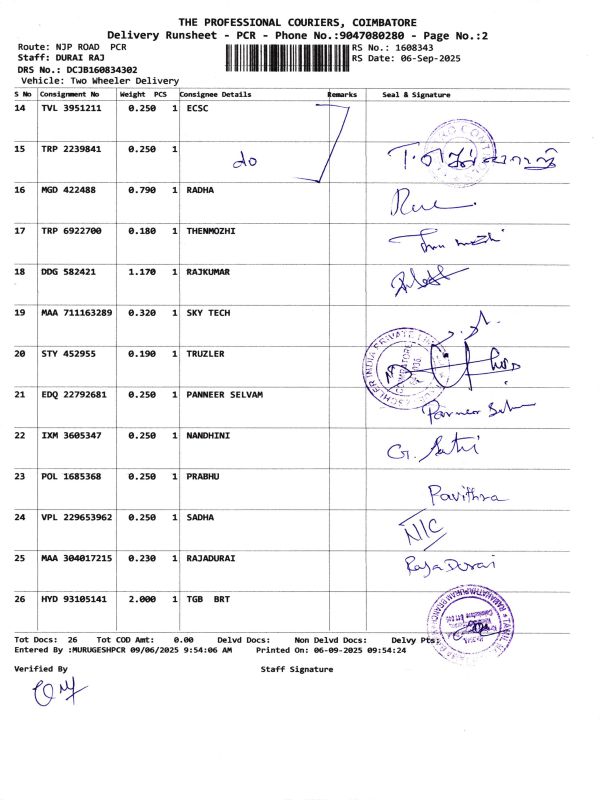 THE PROFESSIONAL COURIERS, COIMBATORE
Delivery Runsheet - PCR - Phone No.:9047080280 - Page No.:2
Route: NJP ROAD PCR RS No.: 1608343
Staff: DURAI RAJ RS Date: 06-Sep-2025
DRS No.: DCJB160834302
Vehicle: Two Wheeler Delivery
S No Consignment No Weight PCS Consignee Details Remarks Seal & Signature
14 TVL 3951211 0.250 1 ECSC
15 TRP 2239841 0.250 1 do
16 MGD 422488 0.790 1 RADHA
17 TRP 6922700 0.180 1 THENMOZHI
18 DDG 582421 1.170 1 RAJKUMAR
19 MAA 711163289 0.320 1 SKY TECH
20 STY 452955 0.190 1 TRUZLER
21 EDQ 22792681 0.250 1 PANNEER SELVAM Panneer
22 IXM 3605347 0.250 1 NANDHINI G.
23 POL 1685368 0.250 1 PRABHU Pavithra
24 VPL 229653962 0.250 1 SADHA N/C
25 MAA 304017215 0.230 1 RAJADURAI Raja Durai
26 HYD 93105141 2.000 1 TGB BRT
Tot Docs: 26 Tot COD Amt: 0.00 Delvd Docs: Non Delvd Docs: Delvy Pts:
Entered By :MURUGESHPCR 09/06/2025 9:54:06 AM Printed On: 06-09-2025 09:54:24
Verified By Staff Signature